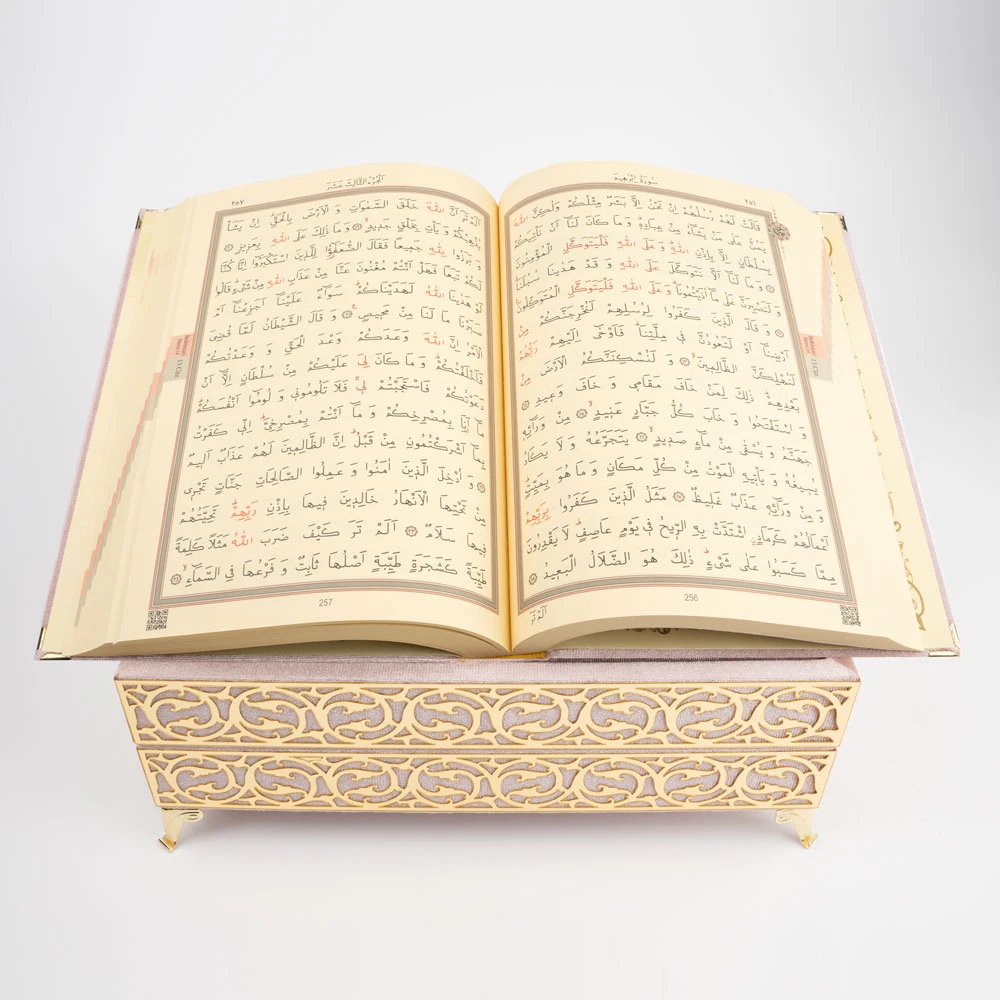 سورة إبرهيم
٢٥٦
قَالَتْ لَهُمْ رُسُلُهُمْ اِنْ نَحْنُ اِلَّا بَشَرٌ مِثْلُكُمْ وَلٰكِنَّ اللّٰهَ
يَمُنُّ عَلٰى مَنْ يَشَٓاءُ مِنْ عِبَادِهٖ وَمَا كَانَ لَنَٓا اَنْ نَأْتِيَكُمْ
بِسُلْطَانٍ اِلَّا بِاِذْنِ اللّٰهِ وَعَلَى اللّٰهِ فَلْيَتَوَكَّلِ الْمُؤْمِنُونَ
وَمَا لَنَٓا اَلَّا نَتَوَكَّلَ عَلَى اللّٰهِ وَقَدْ هَدٰينَا سُبُلَنَا
وَلَنَصْبِرَنَّ عَلٰى مَٓا اٰذَيْتُمُونَا وَعَلَى اللّٰهِ فَلْيَتَوَكَّلِ الْمُتَوَكِّلُونَ
وَقَالَ الَّذٖينَ كَفَرُوا لِرُسُلِهِمْ لَنُخْرِجَنَّكُمْ مِنْ
اَرْضِنَٓا اَوْ لَتَعُودُنَّ فٖي مِلَّتِنَا فَاَوْحٰٓى اِلَيْهِمْ رَبُّهُمْ
لَنُهْلِكَنَّ الظَّالِمٖينَ وَلَنُسْكِنَنَّكُمُ الْاَرْضَ مِنْ
بَعْدِهِمْ ذٰلِكَ لِمَنْ خَافَ مَقَامٖي وَخَافَ وَعٖيدِ
وَاسْتَفْتَحُوا وَخَابَ كُلُّ جَبَّارٍ عَنٖيدٍ مِنْ وَرَٓائِهٖ
جَهَنَّمُ وَيُسْقٰى مِنْ مَٓاءٍ صَدٖيدٍ يَتَجَرَّعُهُ وَلَا يَكَادُ
يُسٖيغُهُ وَيَأْتٖيهِ الْمَوْتُ مِنْ كُلِّ مَكَانٍ وَمَا هُوَ بِمَيِّتٍ
وَمِنْ وَرَٓائِهٖ عَذَابٌ غَلٖيظٌ مَثَلُ الَّذٖينَ كَفَرُوا بِرَبِّهِمْ
اَعْمَالُهُمْ كَرَمَادٍ اشْتَدَّتْ بِهِ الرّٖيحُ فٖي يَوْمٍ عَاصِفٍ لَا يَقْدِرُونَ
مِمَّا كَسَبُوا عَلٰى شَيْءٍ ذٰلِكَ هُوَ الضَّلَالُ الْبَعٖيدُ
256
اَلَمْ تَرَ
الجزء الثالث عشر
٢٥٧
اَلَمْ تَرَ اَنَّ اللّٰهَ خَلَقَ السَّمٰوَاتِ وَالْاَرْضَ بِالْحَقِّ اِنْ يَشَأْ
يُذْهِبْكُمْ وَيَأْتِ بِخَلْقٍ جَدٖيدٍ وَمَا ذٰلِكَ عَلَى اللّٰهِ بِعَزٖيزٍ
وَبَرَزُوا لِلّٰهِ جَمٖيعًا فَقَالَ الضُّعَفٰٓؤُا لِلَّذٖينَ اسْتَكْبَرُٓوا اِنَّا كُنَّا
لَكُمْ تَبَعًا فَهَلْ اَنْتُمْ مُغْنُونَ عَنَّا مِنْ عَذَابِ اللّٰهِ مِنْ شَيْءٍ قَالُوا
لَوْ هَدٰينَا اللّٰهُ لَهَدَيْنَاكُمْ سَوَٓاءٌ عَلَيْنَٓا اَجَزِعْنَٓا اَمْ
صَبَرْنَا مَا لَنَا مِنْ مَحٖيصٍ وَقَالَ الشَّيْطَانُ لَمَّا قُضِيَ
الْاَمْرُ اِنَّ اللّٰهَ وَعَدَكُمْ وَعْدَ الْحَقِّ وَوَعَدْتُكُمْ
فَاَخْلَفْتُكُمْ وَمَا كَانَ لِيَ عَلَيْكُمْ مِنْ سُلْطَانٍ اِلَّٓا اَنْ
دَعَوْتُكُمْ فَاسْتَجَبْتُمْ لٖي فَلَا تَلُومُونٖي وَلُومُٓوا اَنْفُسَكُمْ
مَٓا اَنَا بِمُصْرِخِكُمْ وَمَٓا اَنْتُمْ بِمُصْرِخِيَّ اِنّٖي كَفَرْتُ
بِمَٓا اَشْرَكْتُمُونِ مِنْ قَبْلُ اِنَّ الظَّالِمٖينَ لَهُمْ عَذَابٌ اَلٖيمٌ
وَاُدْخِلَ الَّذٖينَ اٰمَنُوا وَعَمِلُوا الصَّالِحَاتِ جَنَّاتٍ تَجْرٖي
مِنْ تَحْتِهَا الْاَنْهَارُ خَالِدٖينَ فٖيهَا بِاِذْنِ رَبِّهِمْ تَحِيَّتُهُمْ
فٖيهَا سَلَامٌ اَلَمْ تَرَ كَيْفَ ضَرَبَ اللّٰهُ مَثَلًا كَلِمَةً
طَيِّبَةً كَشَجَرَةٍ طَيِّبَةٍ اَصْلُهَا ثَابِتٌ وَفَرْعُهَا فِي السَّمَٓاءِ
257